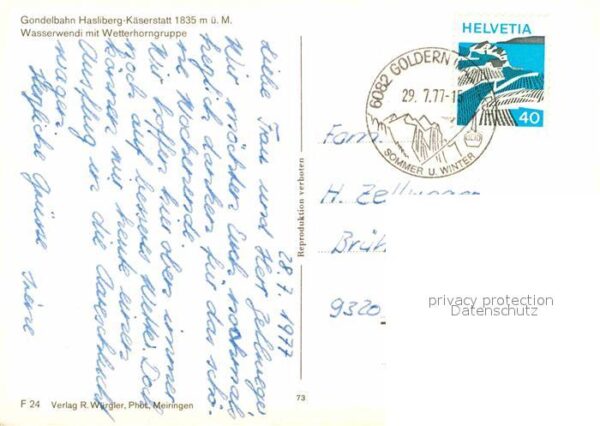 Gondelbahn Hasliberg-Käserstatt 1835 m ü. M.
Wasserwendi mit Wetterhorngruppe
28.7.1977
Liebe Frau und Herr Zellweger
Wir möchten Euch nochmals
herzlich danken für das schö-
ne Wochenende.
Wir hoffen hier oben immer
noch auf besseres Wetter. Doch
können wir heute einen
Ausflug in die Aareschlucht
wagen.
Herzliche Grüsse Irène
F 24 Verlag R. Würgler, Phot. Meiringen
73
Reproduktion verboten
HELVETIA
40
6082 GOLDERN
29.7.77-15
SOMMER U. WINTER
Fam.
H. Zellweger
Brüh
9320
privacy protection
Datenschutz